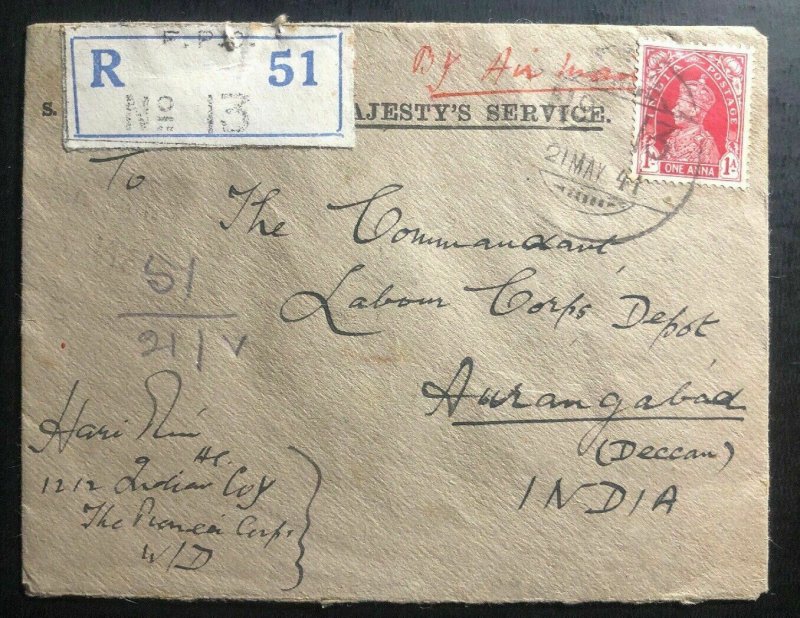 F.P.O.
R 51
No 13
By Air
S. AJESTY'S SERVICE.
INDIA POSTAGE
1A 1A
ONE ANNA
21 MAY 41
To
The Commandant,
Labour Corps Depot
Aurangabad
(Deccan)
INDIA
51
21/V
Hari
1212 Indian Coy
The Pioneer Corps